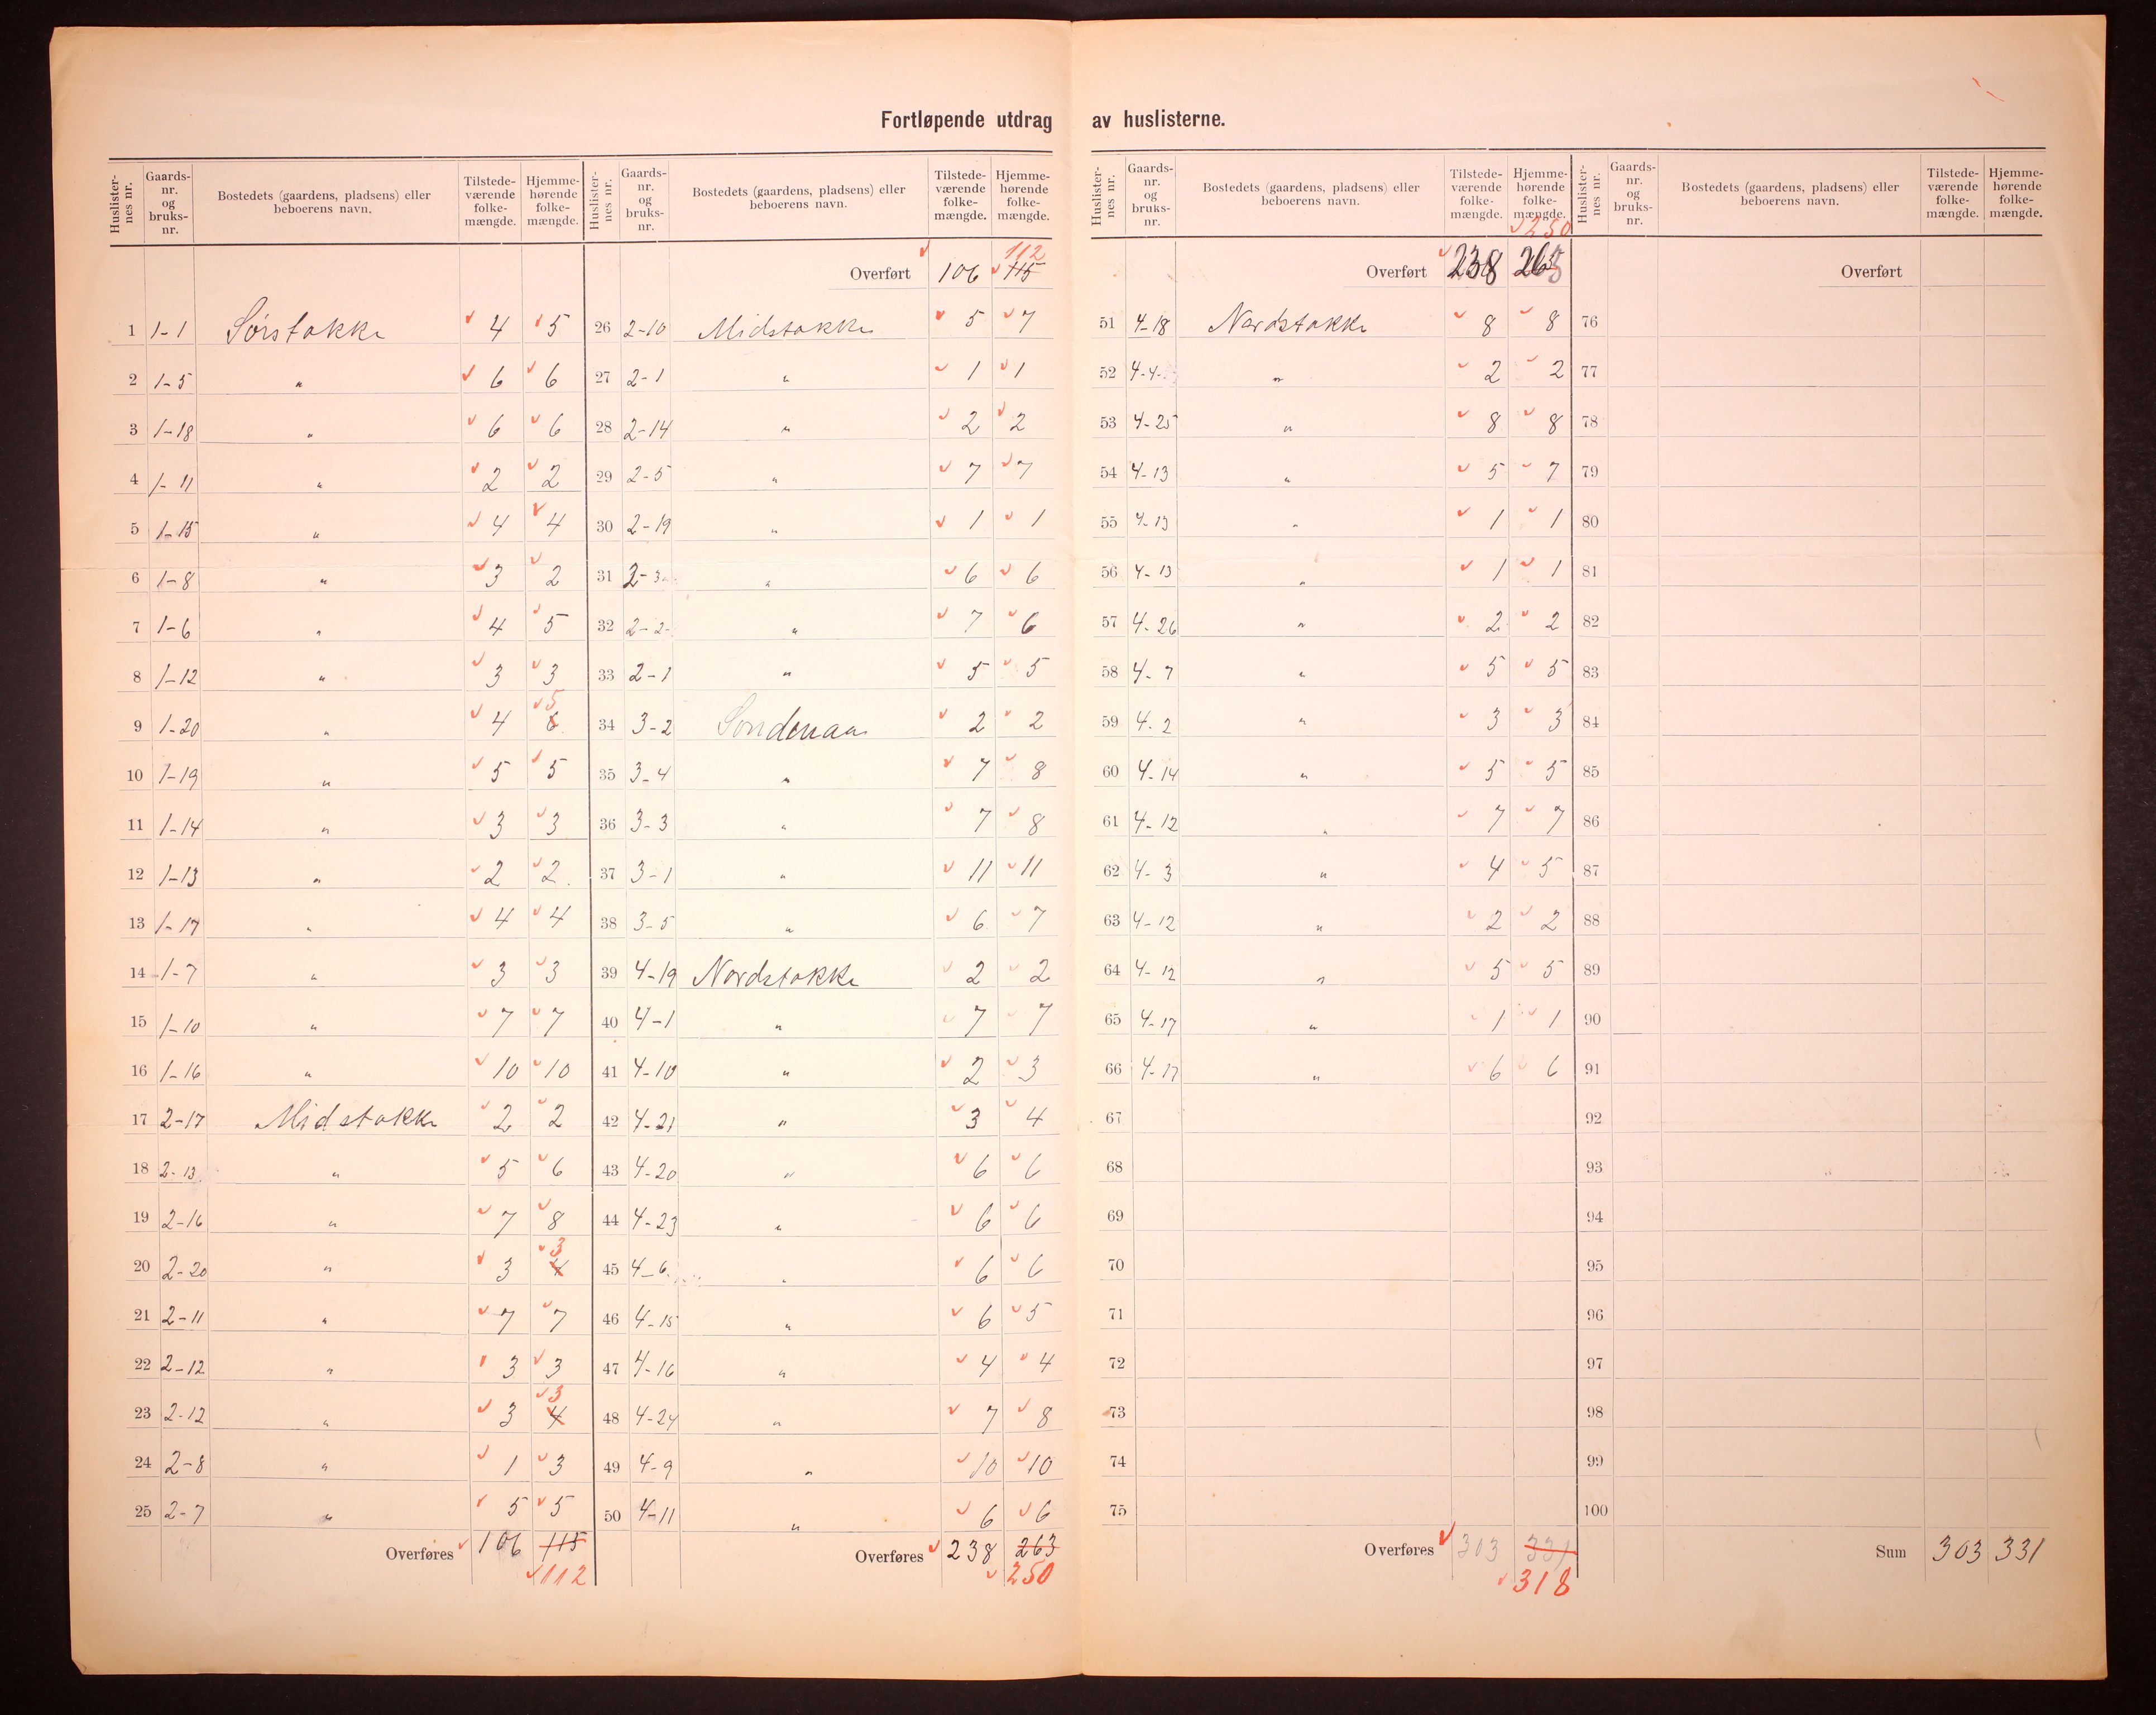 Fortløpende utdrag av huslisterne.
Huslister-nes nr. Gaards-nr. og bruks-nr. Bostedets (gaardens, pladsens) eller beboerens navn. Tilstede-værende folke-mængde. Hjemme-hørende folke-mængde.
1 1-1 Sørstokke 4 5
2 1-5 " 6 6
3 1-18 " 6 6
4 1-11 " 2 2
5 1-15 " 4 4
6 1-8 " 3 2
7 1-6 " 4 5
8 1-12 " 3 3
9 1-20 " 4 6 5
10 1-19 " 5 5
11 1-14 " 3 3
12 1-13 " 2 2
13 1-17 " 4 4
14 1-7 " 3 3
15 1-10 " 7 7
16 1-16 " 10 10
17 2-17 Midstokke 2 2
18 2-13 " 5 6
19 2-16 " 7 8
20 2-20 " 3 4 3
21 2-11 " 7 7
22 2-12 " 3 3
23 2-12 " 3 4 3
24 2-8 " 1 3
25 2-7 " 5 5
Overføres 106 115
112
Huslister-nes nr. Gaards-nr. og bruks-nr. Bostedets (gaardens, pladsens) eller beboerens navn. Tilstede-værende folke-mængde. Hjemme-hørende folke-mængde.
112
Overført 106 115
26 2-10 Midstokke 5 7
27 2-1 " 1 1
28 2-14 " 2 2
29 2-5 " 7 7
30 2-19 " 1 1
31 2-3 " 6 6
32 2-2 " 7 6
33 2-1 " 5 5
34 3-2 Søndenaa 2 2
35 3-4 " 7 8
36 3-3 " 7 8
37 3-1 " 11 11
38 3-5 " 6 7
39 4-19 Nordstokke 2 2
40 4-1 " 7 7
41 4-10 " 2 3
42 4-21 " 3 4
43 4-20 " 6 6
44 4-23 " 6 6
45 4-6 " 6 6
46 4-15 " 6 5
47 4-16 " 4 4
48 4-24 " 7 8
49 4-9 " 10 10
50 4-11 " 6 6
Overføres 238 263
250
Huslister-nes nr. Gaards-nr. og bruks-nr. Bostedets (gaardens, pladsens) eller beboerens navn. Tilstede-værende folke-mængde. Hjemme-hørende folke-mængde.
250
Overført 238 263
51 4-18 Nordstokke 8 8
52 4-4 " 2 2
53 4-25 " 8 8
54 4-13 " 5 7
55 4-13 " 1 1
56 4-13 " 1 1
57 4-26 " 2 2
58 4-7 " 5 5
59 4-2 " 3 3
60 4-14 " 5 5
61 4-12 " 7 7
62 4-3 " 4 5
63 4-12 " 2 2
64 4-12 " 5 5
65 4-17 " 1 1
66 4-17 " 6 6
67
68
69
70
71
72
73
74
75
Overføres 303 331
318
Huslister-nes nr. Gaards-nr. og bruks-nr. Bostedets (gaardens, pladsens) eller beboerens navn. Tilstede-værende folke-mængde. Hjemme-hørende folke-mængde.
Overført
76
77
78
79
80
81
82
83
84
85
86
87
88
89
90
91
92
93
94
95
96
97
98
99
100
Sum 303 331